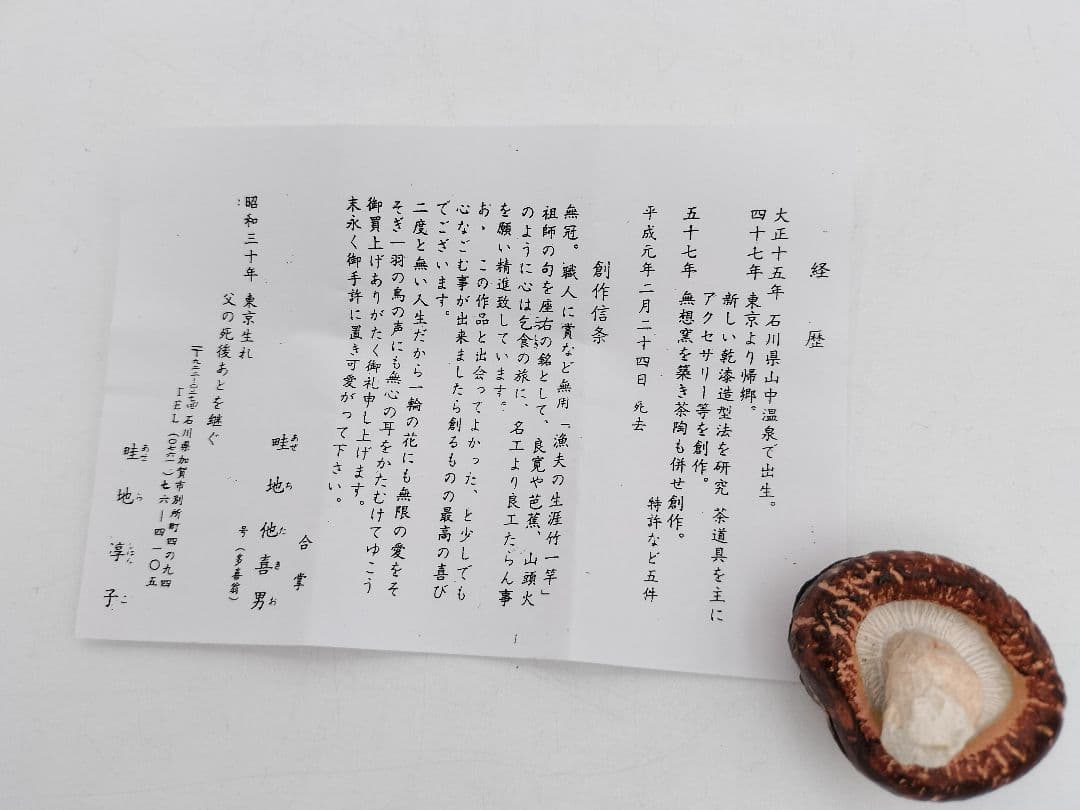 経歴
大正十五年 石川県山中温泉で出生。
四十七年 東京より帰郷。
新しい乾漆造型法を研究 茶道具を主に
アクセサリー等を創作。
五十七年 無想窯を築き茶陶も併せ創作。
特許など五件
平成元年二月二十四日 死去
創作信条
無冠。職人に賞など無用「漁夫の生涯竹一竿」
祖師の句を座右の銘として、良寛や芭蕉、山頭火
のように心は乞食の旅に、名工より良工たらん事
を願い精進致しています。
お、この作品と出会ってよかった、と少しでも
心なごむ事が出来ましたら創るものの最高の喜び
でございます。
二度と無い人生だから一輪の花にも無限の愛をそ
そぎ一羽の鳥の声にも無心の耳をかたむけてゆこう
御買上げありがたく御礼申し上げます。
末永く御手許に置き可愛がって下さい。
合掌
あぜ ち た き お
畦地他喜男
号(多喜翁)
昭和三十年 東京生れ
父の死後あとを継ぐ
石川県加賀市別所町四の九四
TEL(〇七六一)七六ー四一〇五
畦地淳子